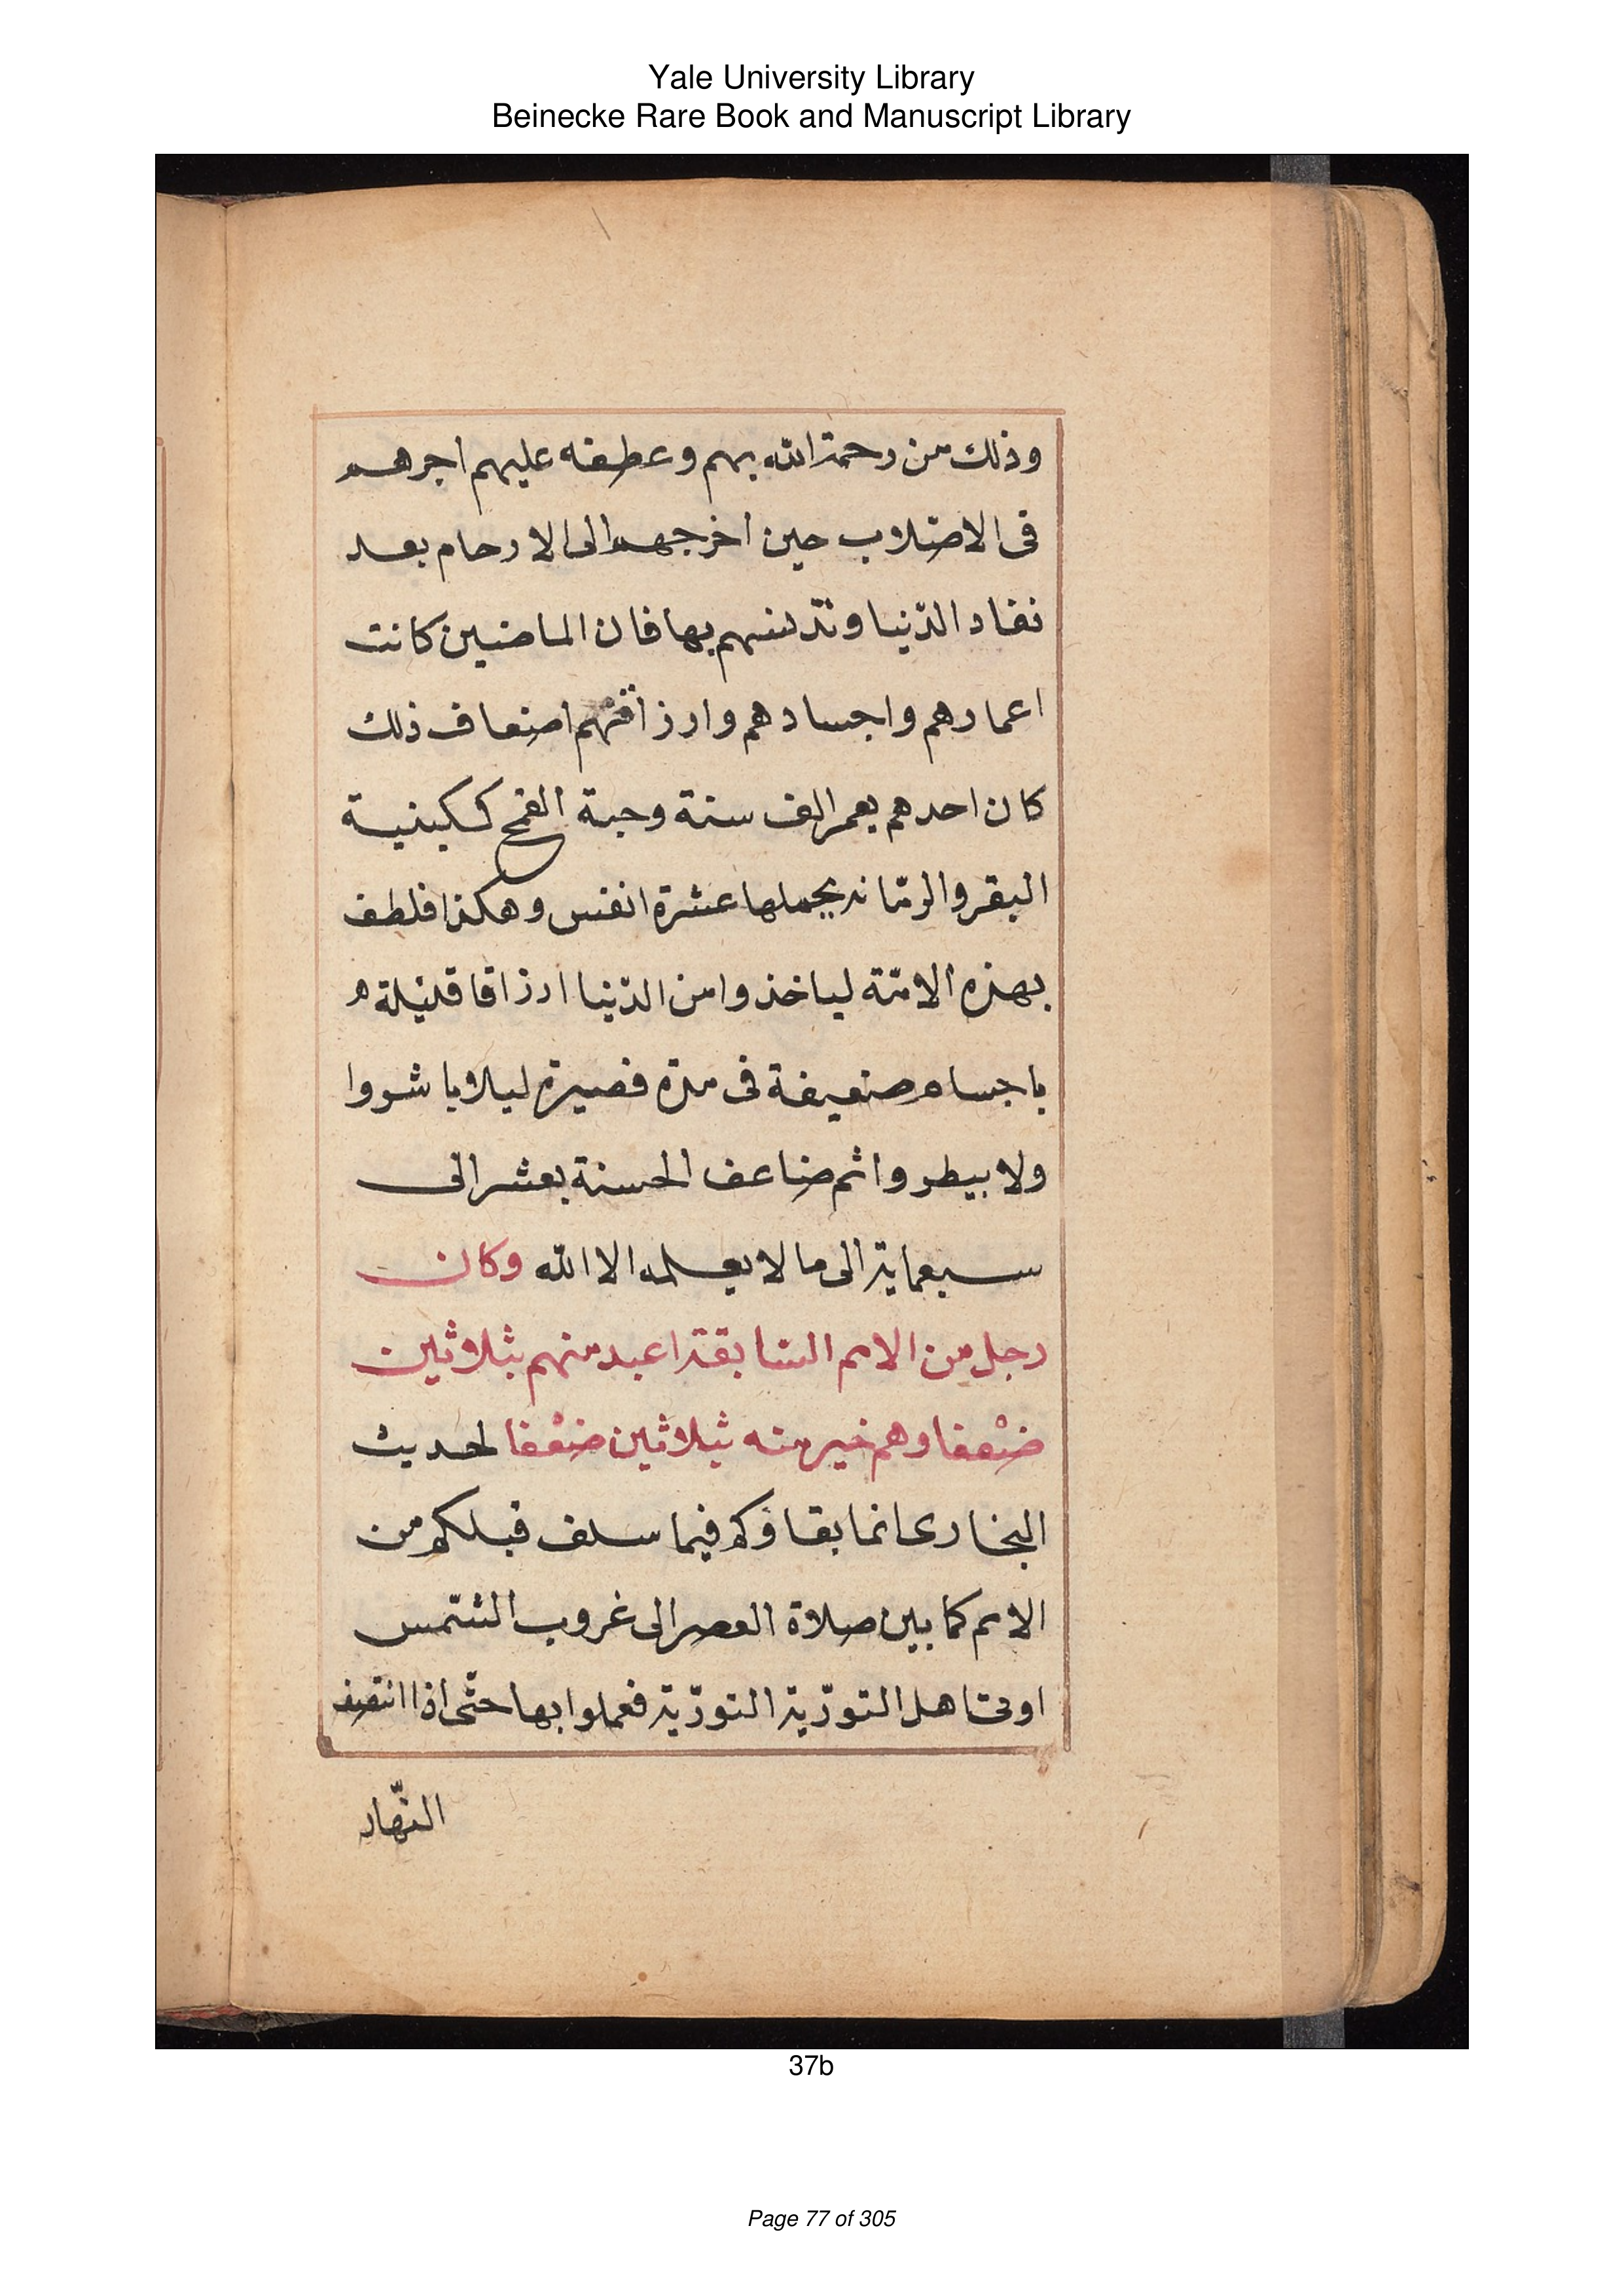 Yale University Library
Beinecke Rare Book and Manuscript Library
وذلك من رحمة الله بهم وعطفه عليهم اجرهم
فى الاصلاب حين اخرجهم الى الارحام بعد
نفاد الدّنيا وتدنسهم بها فان الماضيين كانت
اعمارهم واجسادهم وارزاقهم اضعاف ذلك
كان احدهم يعمر الف سنة وحبة القمح ككينية
البقر والرمّانة يحملها عشرة انفس وهكذا فلطف
بهذه الامّة لياخذوا من الدّنيا ارزاقا قليلة
باجسام ضعيفة فى مدة قصيرة ليلا ياشروا
ولا يبطروا ثم ضاعف الحسنة بعشر الى
سبعماية الى ما لا يعلمه الا الله وكان
رجل من الامم السّابقة اعبد منهم بثلاثين
ضعْفا وهم خير منه بثلاثين ضعْفا لحديث
البخارى انما بقاؤكم فيما سلف قبلكم من
الامم كما بين صلاة العصر الى غروب الشّمس
اوتى اهل التورّية التورّية فعملوا بها حتّى اذا انتصف
النّهار
37b
Page 77 of 305